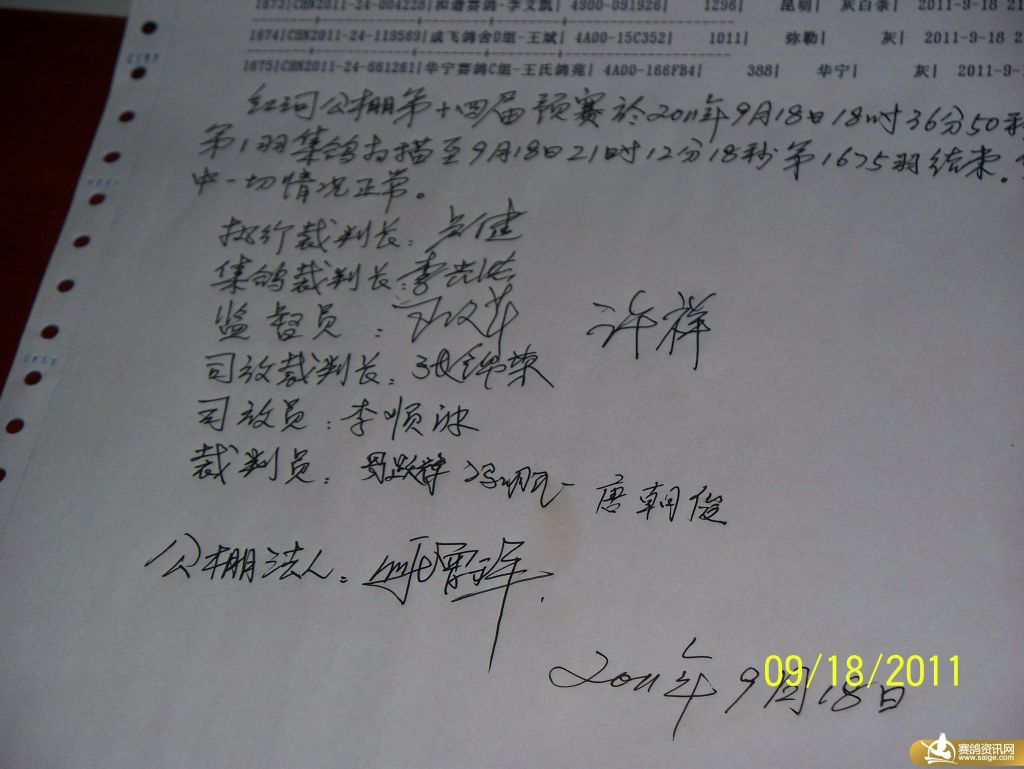 1673|CHN2011-24-004228|和谐赛鸽-李文凯| 4900-091926| 1296| 昆明| 灰白条| 2011-9-18 21
1674|CHN2011-24-119589|威飞鸽舍D组-王斌| 4A00-15C352| 1011| 弥勒| 灰| 2011-9-18 2
1675|CHN2011-24-661261|华宁赛鸽C组-王氏鸽苑| 4A00-166FB4| 388| 华宁| 灰| 2011-9-
红河公棚第十四届预赛於2011年9月18日18时36分50秒
第1羽集鸽扫描至9月18日21时12分18秒第1675羽结束。
中一切情况正常。
执行裁判长：
集鸽裁判长：李
监督员： 许祥
司放裁判长：张锦荣
司放员：李顺
裁判员： 唐朝俊
公棚法人：
2011年9月18日
09/18/2011
赛鸽资讯网
www.saige.com